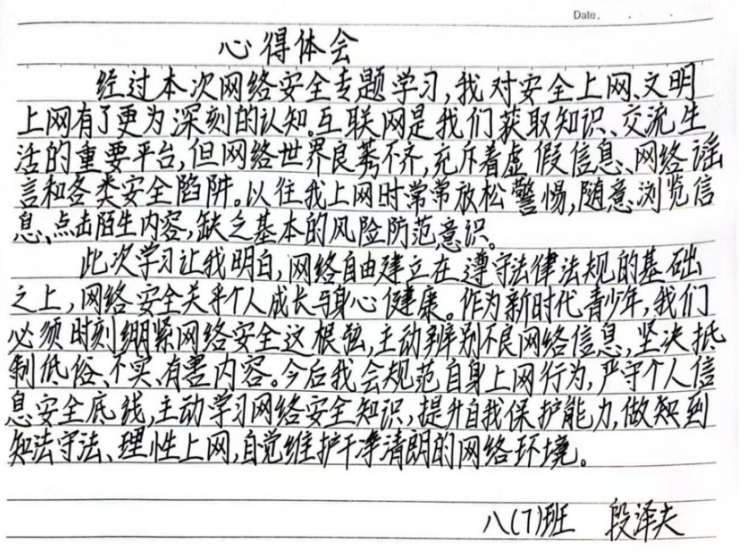 Date.
心得体会
经过本次网络安全专题学习,我对安全上网、文明
上网有了更为深刻的认知。互联网是我们获取知识、交流生
活的重要平台,但网络世界良莠不齐,充斥着虚假信息、网络谣
言和各类安全陷阱。以往我上网时常常放松警惕,随意浏览信
息、点击陌生内容,缺乏基本的风险防范意识。
此次学习让我明白,网络自由建立在遵守法律法规的基础
之上,网络安全关乎个人成长与身心健康。作为新时代青少年,我们
必须时刻绷紧网络安全这根弦,主动辨别不良网络信息,坚决抵
制低俗、不实、有害内容。今后我会规范自身上网行为,严守个人信
息安全底线,主动学习网络安全知识,提升自我保护能力,做知到
知法守法、理性上网,自觉维护干净清朗的网络环境。
八(7)班 段泽夫